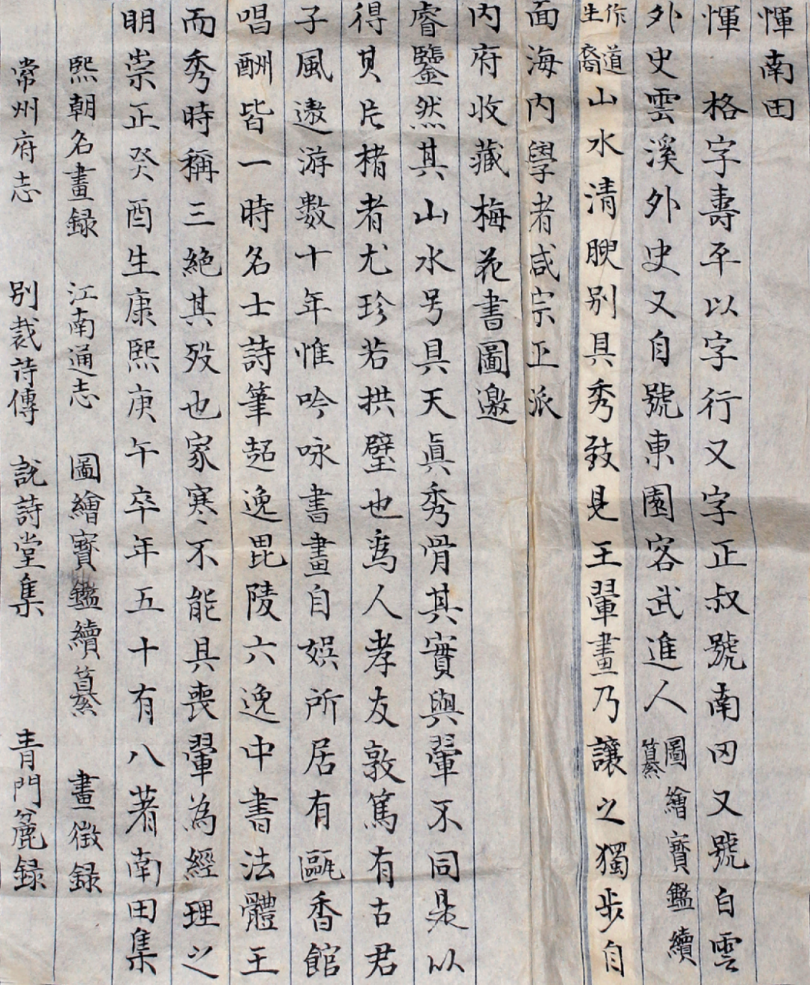 惲南田
惲　格字壽平以字行又字正叔號南田又號白雲
外史雲溪外史又自號東園客武進人圖繪寶鑑續纂
作道生裔山水清腴別具秀致見王翬畫乃讓之獨步自
面海内學者咸宗正派
内府收藏梅花書圖邀
睿鑒然其山水号具天眞秀骨其實與翬不同是以
得其片楮者尤珍若拱璧也爲人孝友敦篤有古君
子風遨游數十年惟吟咏書畫自娛所居有甌香館
唱酬皆一時名士詩筆超逸毘陵六逸中書法體王
而秀時稱三絶其殁也家寒不能具喪翬為經理之
明崇正癸酉生康熙庚午卒年五十有八著南田集
熙朝名畫録　江南通志　圖繪寶鑑續纂　畫徵録
常州府志　別裁詩傳　説詩堂集　青門麄録